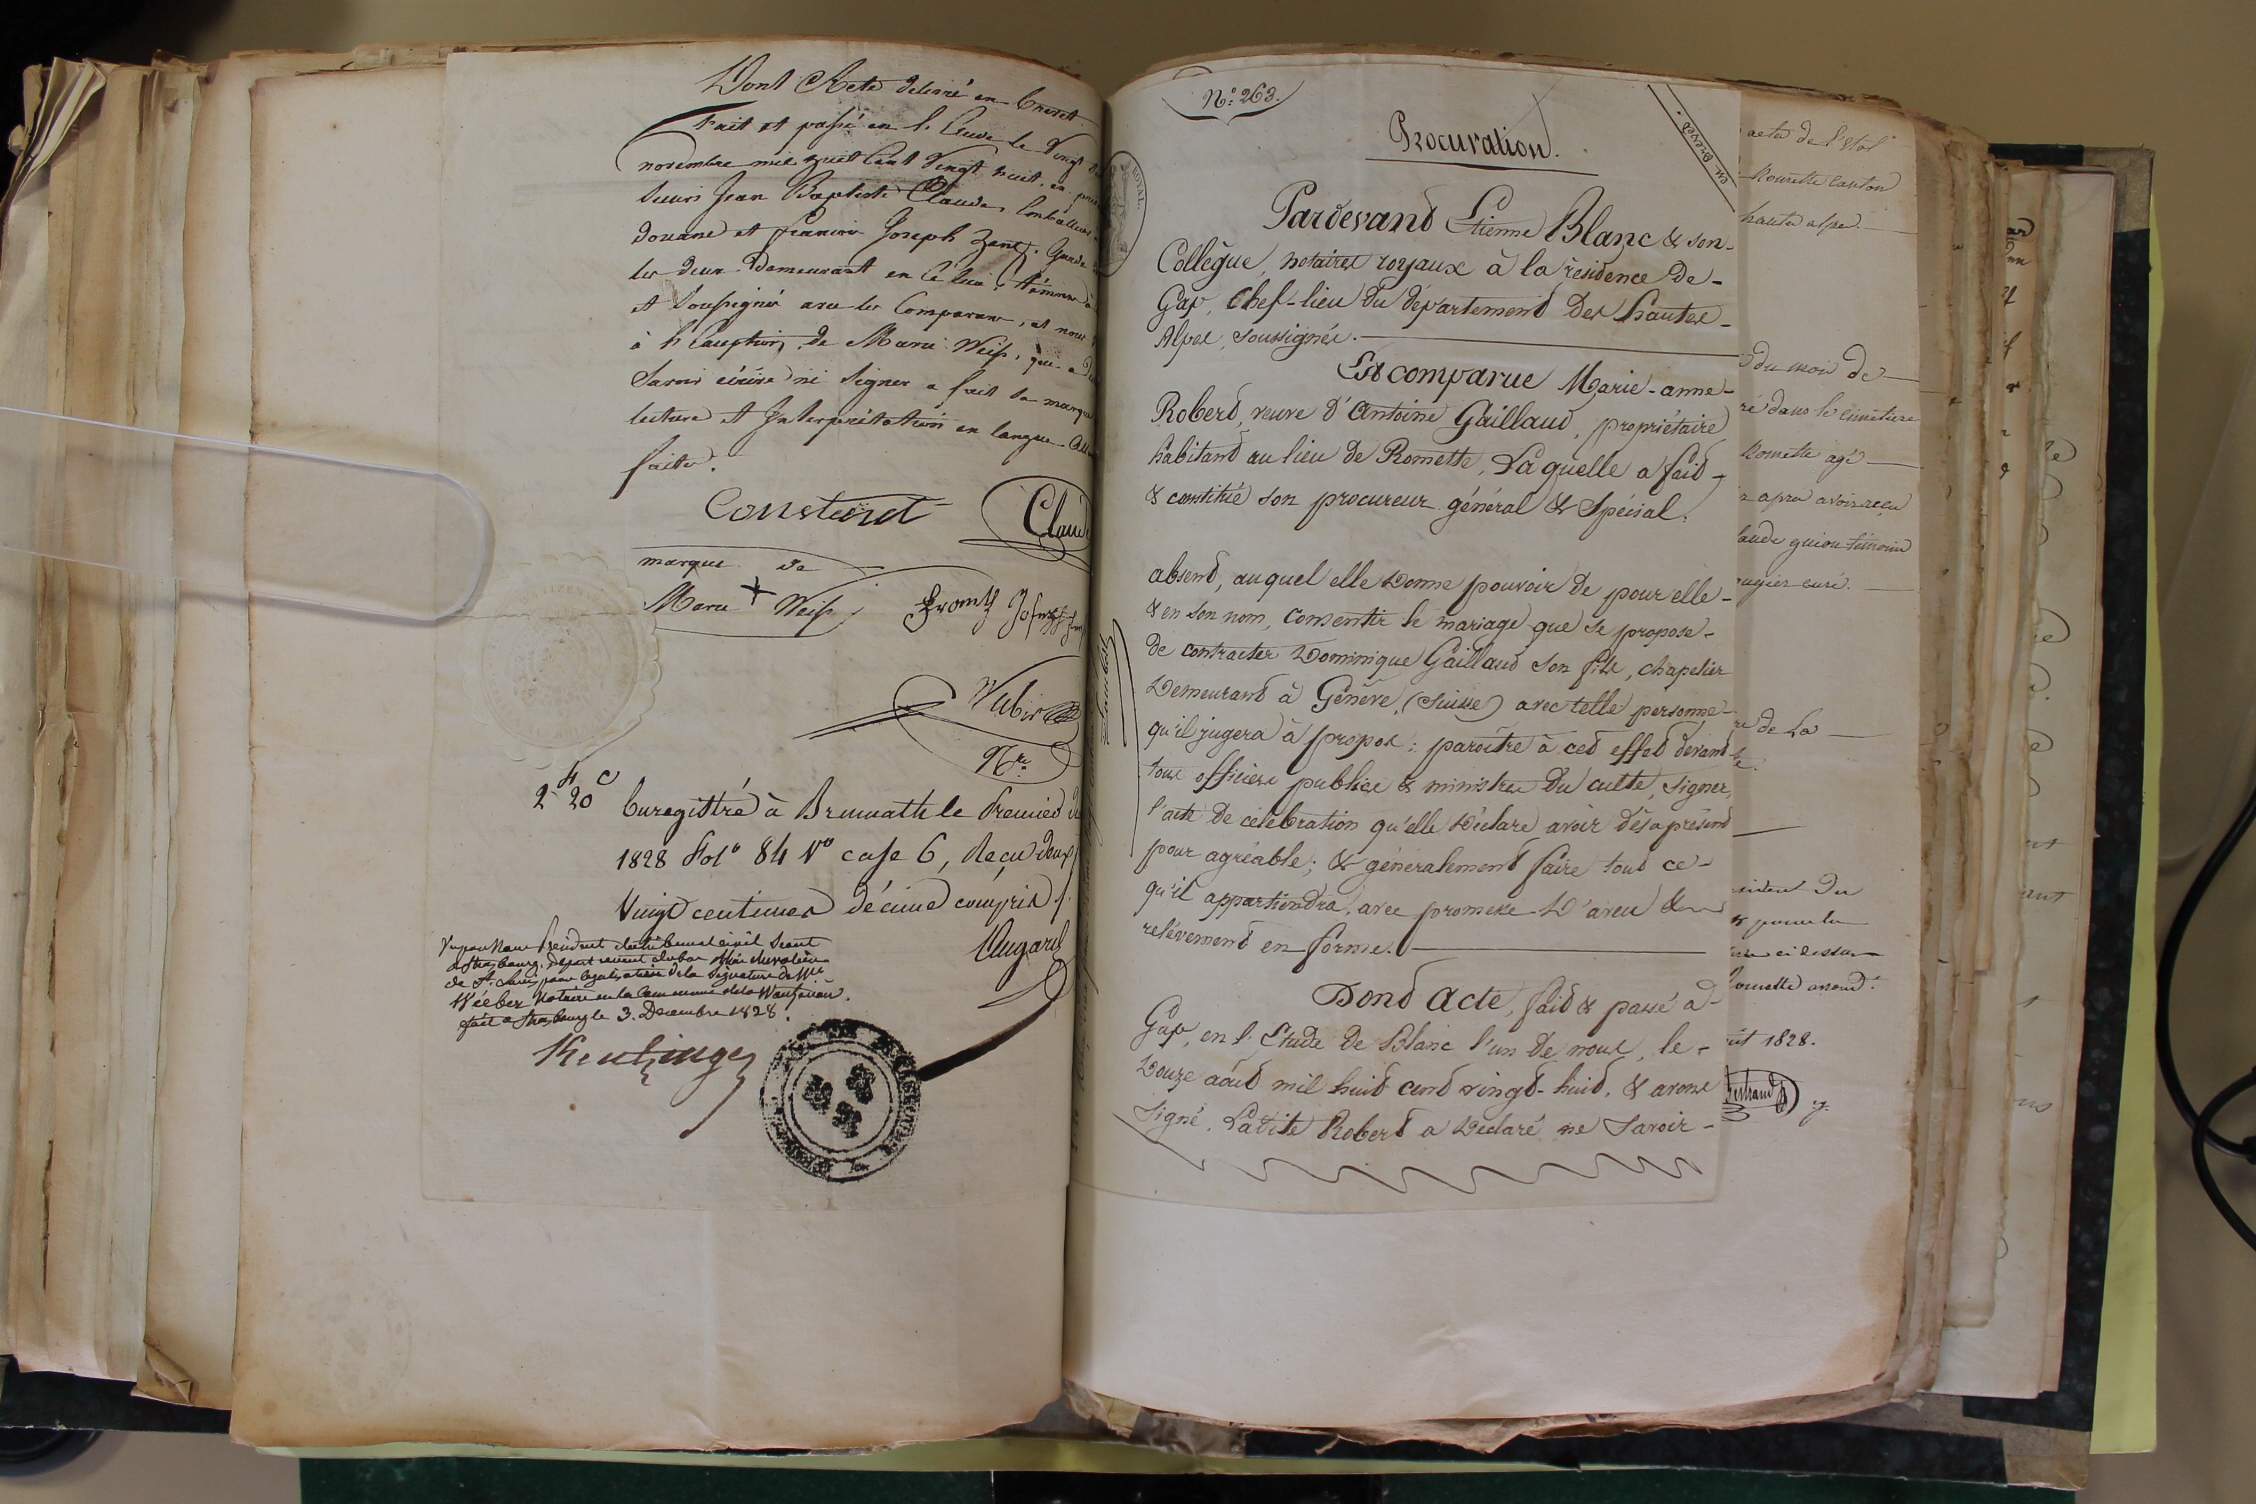 Dont Acte délivré en brevet.
Fait et passé en l'Etude le Vingt
novembre mil huit Cent Vingt huit, en
Sieurs Jean Baptiste Claude, Contrôleur
douane et francois Joseph Zentz, Garde
les deux demeurant en Ce lieu, témoins
et Soussignés avec les Comparans, et nous
à l'exception de Marie Weiss, qui a
Savoir écrire ni Signer a fait sa marque
lecture et Interprétation en langue
faite.
Claude
marque de
Marie + Weiss
Weber
Nre.
2 F 20 C
Enregistré à Brumath le Premier
1828 Fol° 84 V° case 6, Reçu deux
Vingt centimes décime compris
Vu par Nous Président du tribunal civil Séant
à Strasbourg, département du bas Rhin chevalier
de St. Louis, pour légalisation de la Signature de Me.
Wéeber Notaire en la Commune de la Wantzenau.
fait à Strasbourg le 3. Decembre 1828.
N.° 263.
ROYAL.
en brevet.
Procuration.
Pardevant Etienne Blanc & son-
Collègue, notaires royaux à la résidence de-
Gap, Chef-lieu du département des hautes-
Alpes, soussignés.
Est comparue Marie-anne-
Robert, veuve d'Antoine Gaillaud, propriétaire
habitant au lieu de Romette, Laquelle a fait-
& constitué son procureur général & Spécial.
absent, auquel elle donne pouvoir de pour elle-
& en son nom, Consentir le mariage que se propose-
de contracter Dominique Gaillaud son fils, chapelier
demeurant à Genève, (Suisse) avec telle personne-
qu'il jugera à propos: paroitre à cet effet devant
tous officiers publics & ministres du culte, signer,
l'acte de célébration qu'elle déclare avoir dès à présent
pour agréable; & généralement faire tout ce-
qu'il appartiendra, avec promesse d'aveu &
relèvement en forme.
Dont Acte, fait & passé à-
Gap, en l'Etude de Blanc l'un de nous, le-
douze août mil huit cent vingt-huit, & avons
signé. Ladite Robert a déclaré ne savoir-
acte de l'Etat
Romette canton
hautes alpes.
du mois de
dans le cimetiere
Romette agé
apres avoir reçu
laude guion témoin
curé.
de La
du
pour la
ci dessus
1828.
Bertrand